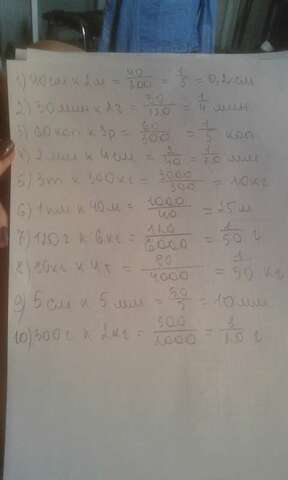 1) 40 см к 2 м = 40/200 = 1/5 = 0,2 см
2) 30 мин к 2 г = 30/120 = 1/4 мин
3) 60 коп к 3р = 60/300 = 1/5 коп
4) 2 мм к 4 см = 2/40 = 1/20 мм
5) 3т к 300 кг = 3000/300 = 10 кг
6) 1 км к 40 м = 1000/40 = 25 м
7) 120 г к 6 кг = 120/6000 = 1/50 г
8) 80 кг к 4 т = 80/4000 = 1/50 кг
9) 5 см к 5 мм = 50/5 = 10 мм
10) 300 г к 2 кг = 300/2000 = 3/20 г